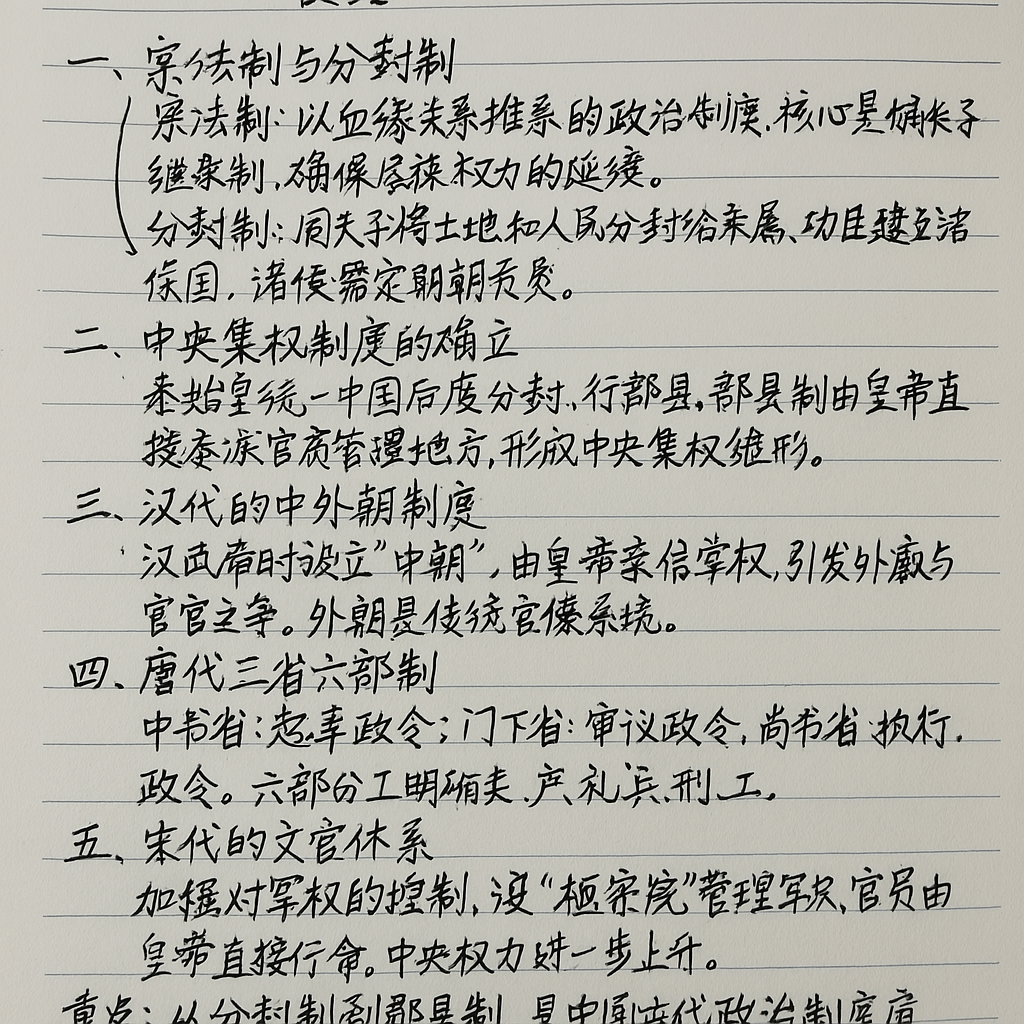 一、宗法制与分封制
宗法制：以血缘关系推系的政治制度，核心是嫡长子
继承制，确保居族权力的延续。
分封制：周天子将土地和人民分封给亲属、功臣建立诸
侯国，诸侯需定期朝贡。
二、中央集权制度的确立
秦始皇统一中国后废分封，行郡县，郡县制由皇帝直
接派官管理地方，形成中央集权雏形。
三、汉代的中外朝制度
汉武帝时设立"中朝"，由皇帝亲信掌权，引发外与
官官之争。外朝是传统官僚系统。
四、唐代三省六部制
中书省：起草政令；门下省：审议政令，尚书省执行，
政令。六部分工明确、户、礼、兵、刑、工。
五、宋代的文官体系
加强对军权的控制，设"枢密院"管理军，官员由
皇帝直接行命。中央权力进一步上升。
重点：从分封制到郡县制，是中国古代政治制度